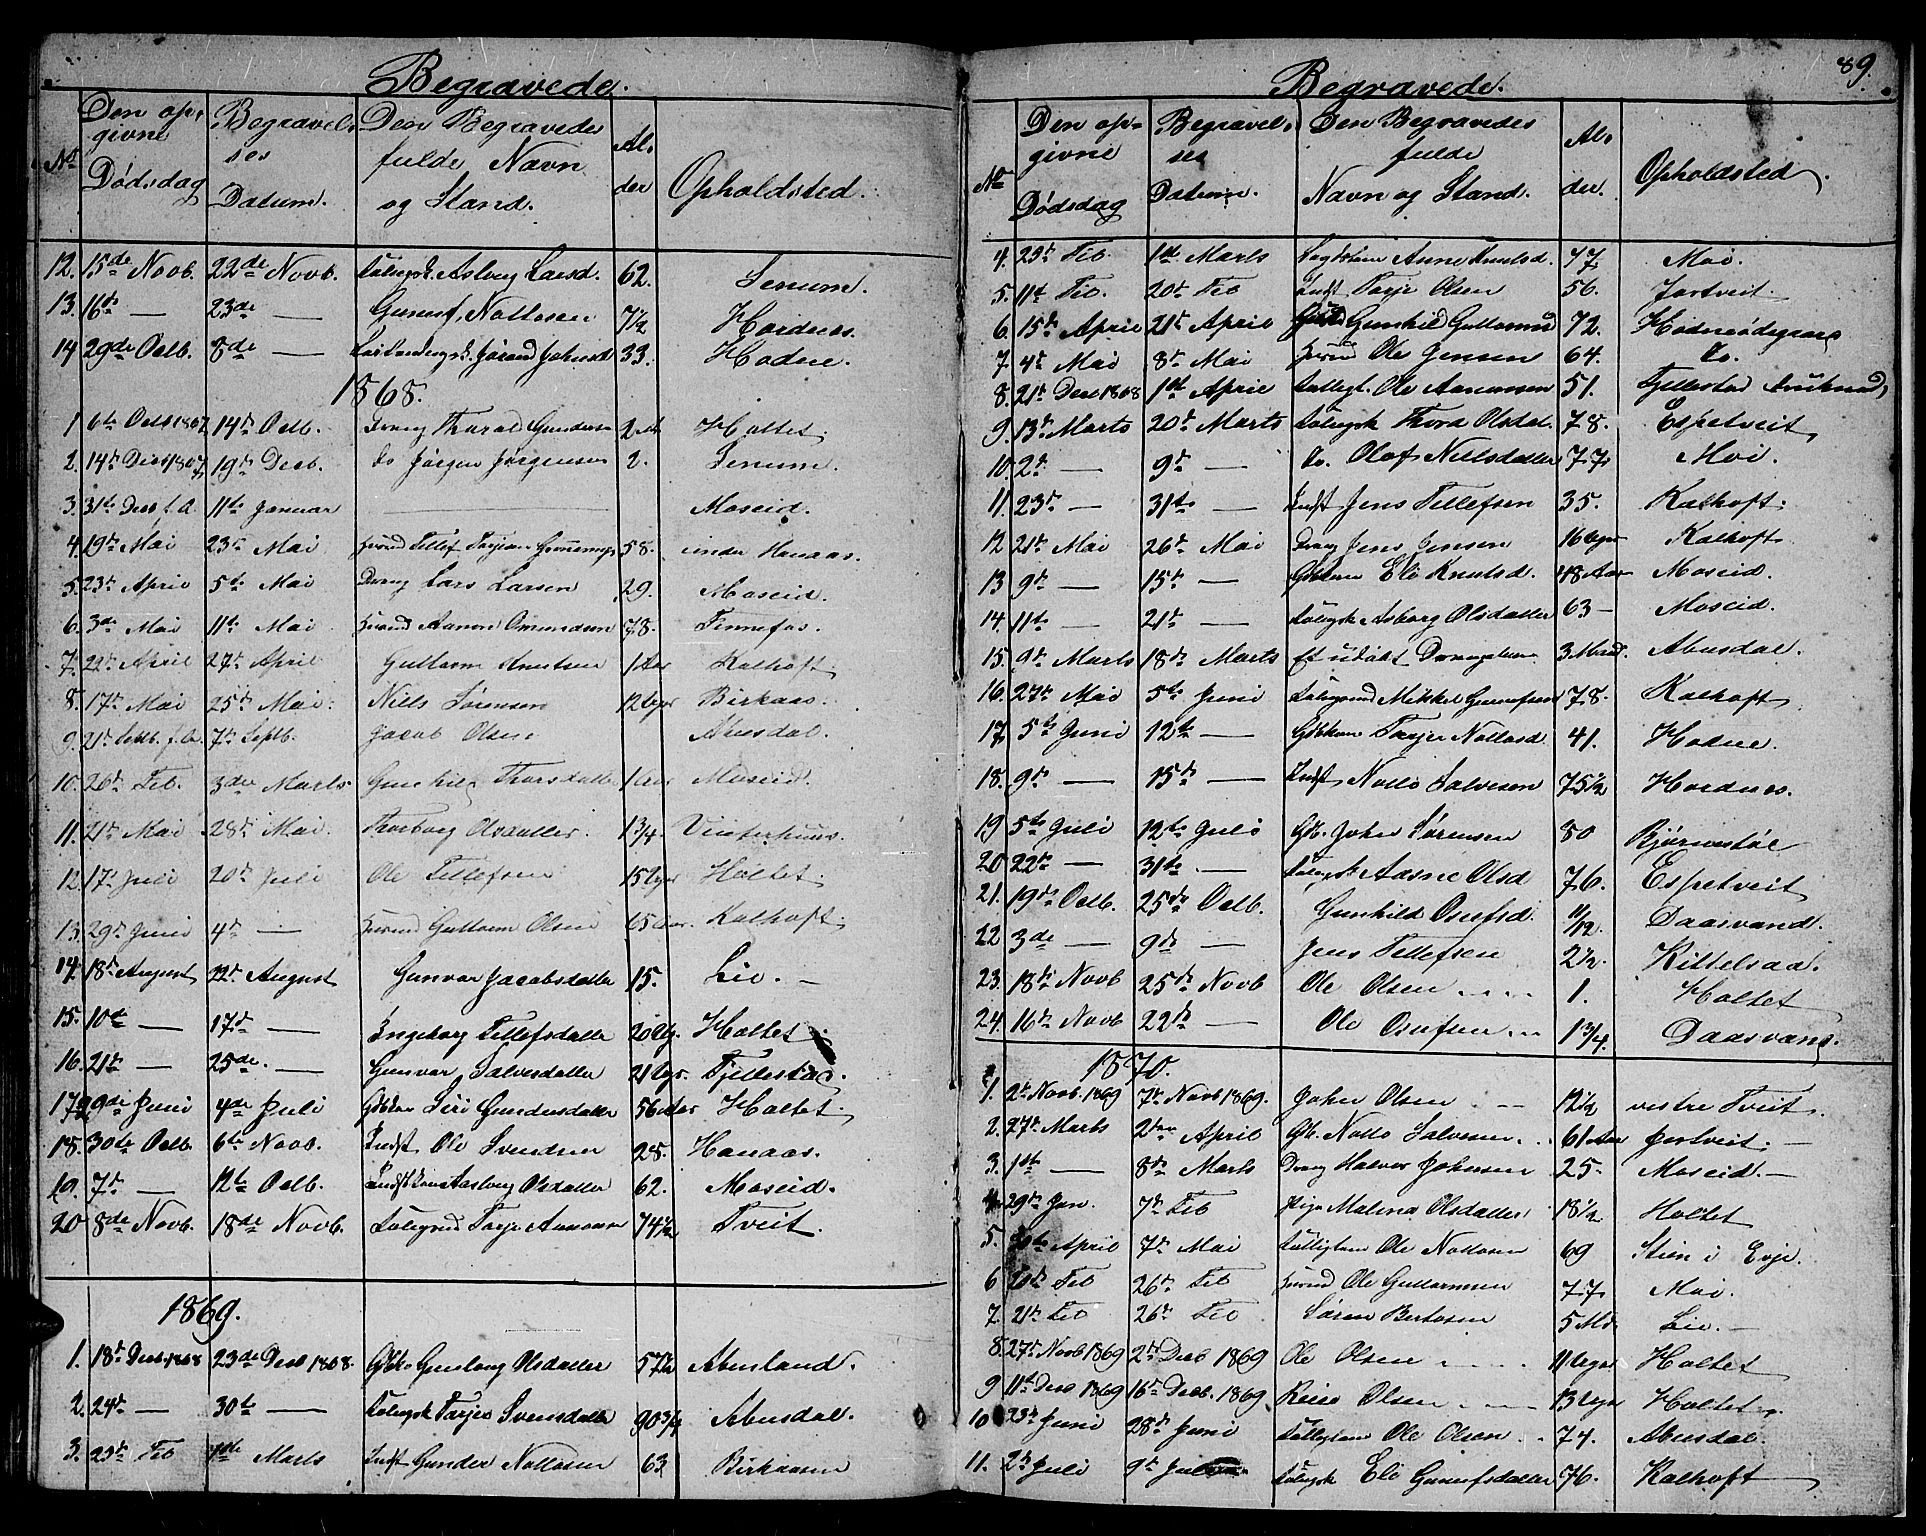 Begravede.
No Den opgivne Dødsdag Begravelses Datum. Den Begravedes fulde Navn og Stand. Alder Opholdsted.
12. 15de Novb. 22de Novb. Aslaug Larsd. 62. Senum.
13. 16de — 23de — Gunuf Nottosen 7½ Hordnes.
14 29de Octb. 8de — Jørand Johnsd 33. Hodne.
1868.
1 6te Octb 1867 14de Octb. Dreng Tharal Gunders 2 Holtet.
2. 14de Decb 1867 19de Decb. do Jørgen Jørgensen 2. Senum.
3. 31te Decb f.A. 11te Januar Moseid.
4. 19de Mai 23de Mai Tellef Terjesen 58. indre Hanaas.
5. 23de April 5te Mai Dreng Lars Larsen 29. Moseid.
6. 3de Mai 11te Mai Aanon Omundsen 78. Finnefos.
7. 22de April 27de April Guttorm Knutsen 1 Aar Kalhoft.
8. 17de Mai 25de Mai. Niels Sørensen 12 Uger Birkaas.
9. 21de Septb. f.A. 7de Septb. Jacob Olsen Abusdal.
10. 26de Feb. 3de Marts Gunhild Thorsdatter 1 Aar Moseid.
11. 21de Mai 28de Mai. Thorborg Olsdatter. 1 3/4 Vinterhuus.
12. 17de Juli 20de Juli Ole Tellefsen 15 Uger Holtet.
13. 29de Juni 4de — Guttorm Olsen 65 Aar. Kalhoft.
14. 18de August 22de August Gunvor Jacobsdatter 15. Lie. —
15. 10de — 17de — Ingeborg Tellefsdatter 20 Ug. Holtet.
16. 21de — 25de. — Gunvor Salvesdatter 21 Ugr. Fjellestad.
17 29de Juni 4de Juli Gbkone Siri Gundersdatter 56 Aar Holtet.
18. 30te Octb. 6te Novb. Indst Ole Svendsen 28. Hanaas.
19. 7de — 12te Octb. Aslaug Olsdatter 62. Moseid.
20 8de Novb. 18de Novb. Terje Aanonsen 74½ Tveit.
1869.
1. 18de Decb. 1868 23de Decb 1868. Gunlaug Olsdatter 57½ Abusland.
2. 24de — 30te — Terjer Svensdatter 90 3/4 Abusdal.
3. 23de Feb Marts Indst Gunder Nottosen 63 Birkaasen
89.
Begravede.
No Den opgivne Dødsdag Begravelses Datum. Den Begravedes fulde Navn og Stand. Alder. Opholdsted.
4. 23de Feb. 1ste Marts Anne Knutsd. 77 Moi.
5. 11te Feb. 20de Feb Indst Terje Olsen 56. Jortveit.
6. 15de April 21de April Gunhild Guttormsd 72. Hodneødegaard
7. 4de Mai 8de Mai Ole Jensen 64. do.
8. 21de Decb 1868 1ste April Ole Aanonsen 51. Fjellestad
9. 13de Marts 20de Marts Thora Olsdat. 78. Espetveit
10. 2de — 9de — do. Olaf Nielsdatter 77 Moi.
11. 23de — 31te — Indst Jens Tellefsen 35. Kalhoft.
12 21de Mai 26de Mai Dreng Jens Jensen 16 Uger Kalhoft.
13 9de — 15de — Gbkone Eli Knutsd. 48 Aar Moseid.
14. 11te — 21de — Asborg Olsdatter 63 — Moseid.
15. 9de Marts 18de Marts Et udøbt Drengebarn 3 Abusdal.
16. 27de Mai 5te Juni Mikkel Gunufsen 78. Kalhoft
17 5te Juni 12te — Gbkone Terjer Nottosd. 41. Hodne.
18. 9de — 15de — Indst Notto Salvesen 75½ Hordnes.
19 5te Juli 12te Juli Gb. John Sørensen 80 Bjørnestøl
20 22de — 31te — Aasne Olsd 76. Espetveit
21. 19de Octb. 25de Octb. Gunhild Osufsd. 11/12 Daasvand.
22 3de — 9de — Jens Tellefsen 2½. Kittelsaa.
23. 18de Novb 25de Novb Ole Olsen 1. Holtet
24. 16de Novb 22de — Ole Osufsen 1 3/4. Daasvand.
1870.
1. 2de Novb. 1869 7de Novb 1869. John Olsen 12½ vestre Tveit.
2. 27de Marts 2den April Gb. Notto Salvesen 61 Aar Jortveit. —
3. 1ste — 8de Marts Dreng Halvor Johnsen 25. Moseid. —
4 29de Jan. 7de Feb Pige Malena Olsdatter 18½ Holtet
5. April 7de Mai Ole Nottosen 69 Stien i Evje.
6 Feb 26de Feb Ole Guttormsen 77 Moi.
7. 21de Feb 26de Feb. Søren Bertosen 5 Md. Lie. —
8. 27de Novb 1869 2de Decb 1869 Ole Olsen 11 Uger Holtet
9 11te Decb 1869 16de Decb. 1869. Reier Olsen 13 Uger Holtet
10 23de Juni 28de Juni Ole Olsen 74. Abusdal
11. 2de Juli 9de Juli Eli Gunufsdatter 76. Kalhoft